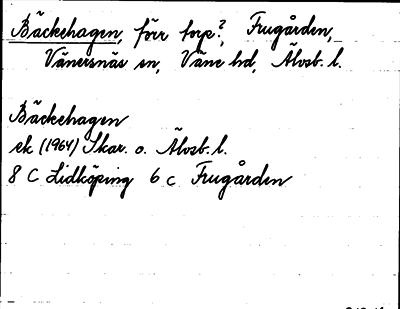 Bäckehagen, förr torp?, Frugården,
Vänersnäs sn, Väne hd, Älvsb. l.
Bäckehagen
ek (1964) Skar. o. Älvsb. l.
8 C Lidköping 6 c Frugården